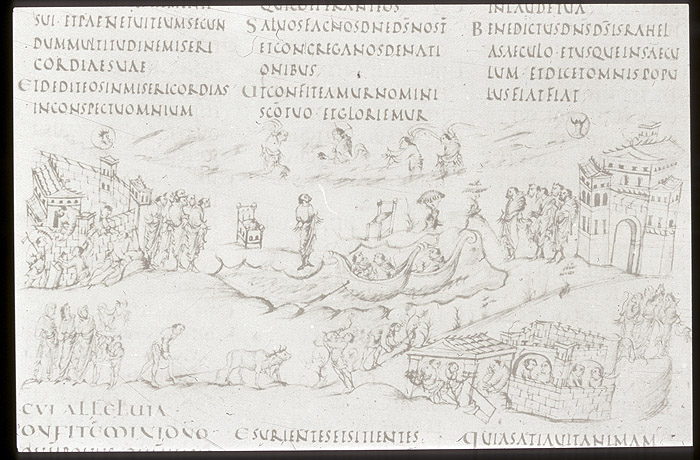 SUI ETPAENETUITEUMSECUN
DUMMULTITUDINEMISERI
CORDIAESUAE
ETDEDITEOSINMISERICORDIAS
INCONSPECTUOMNIUM
SALUOSFACNOSDNEDSNOST
ETCONGREGANOSDENATI
ONIBUS
UTCONFITEAMURNOMINI
SCOTUO ETGLORIEMUR
INLAUDETUA
BENEDICTUSDNSDSISRAHEL
ASAECULO ETUSQUEINSAECU
LUM ETDICETOMNISPOPU
LUSFIATFIAT
CVI ALLELUIA
ESURIENTESETSITIENTES
QUIASATIAUITANIMAM